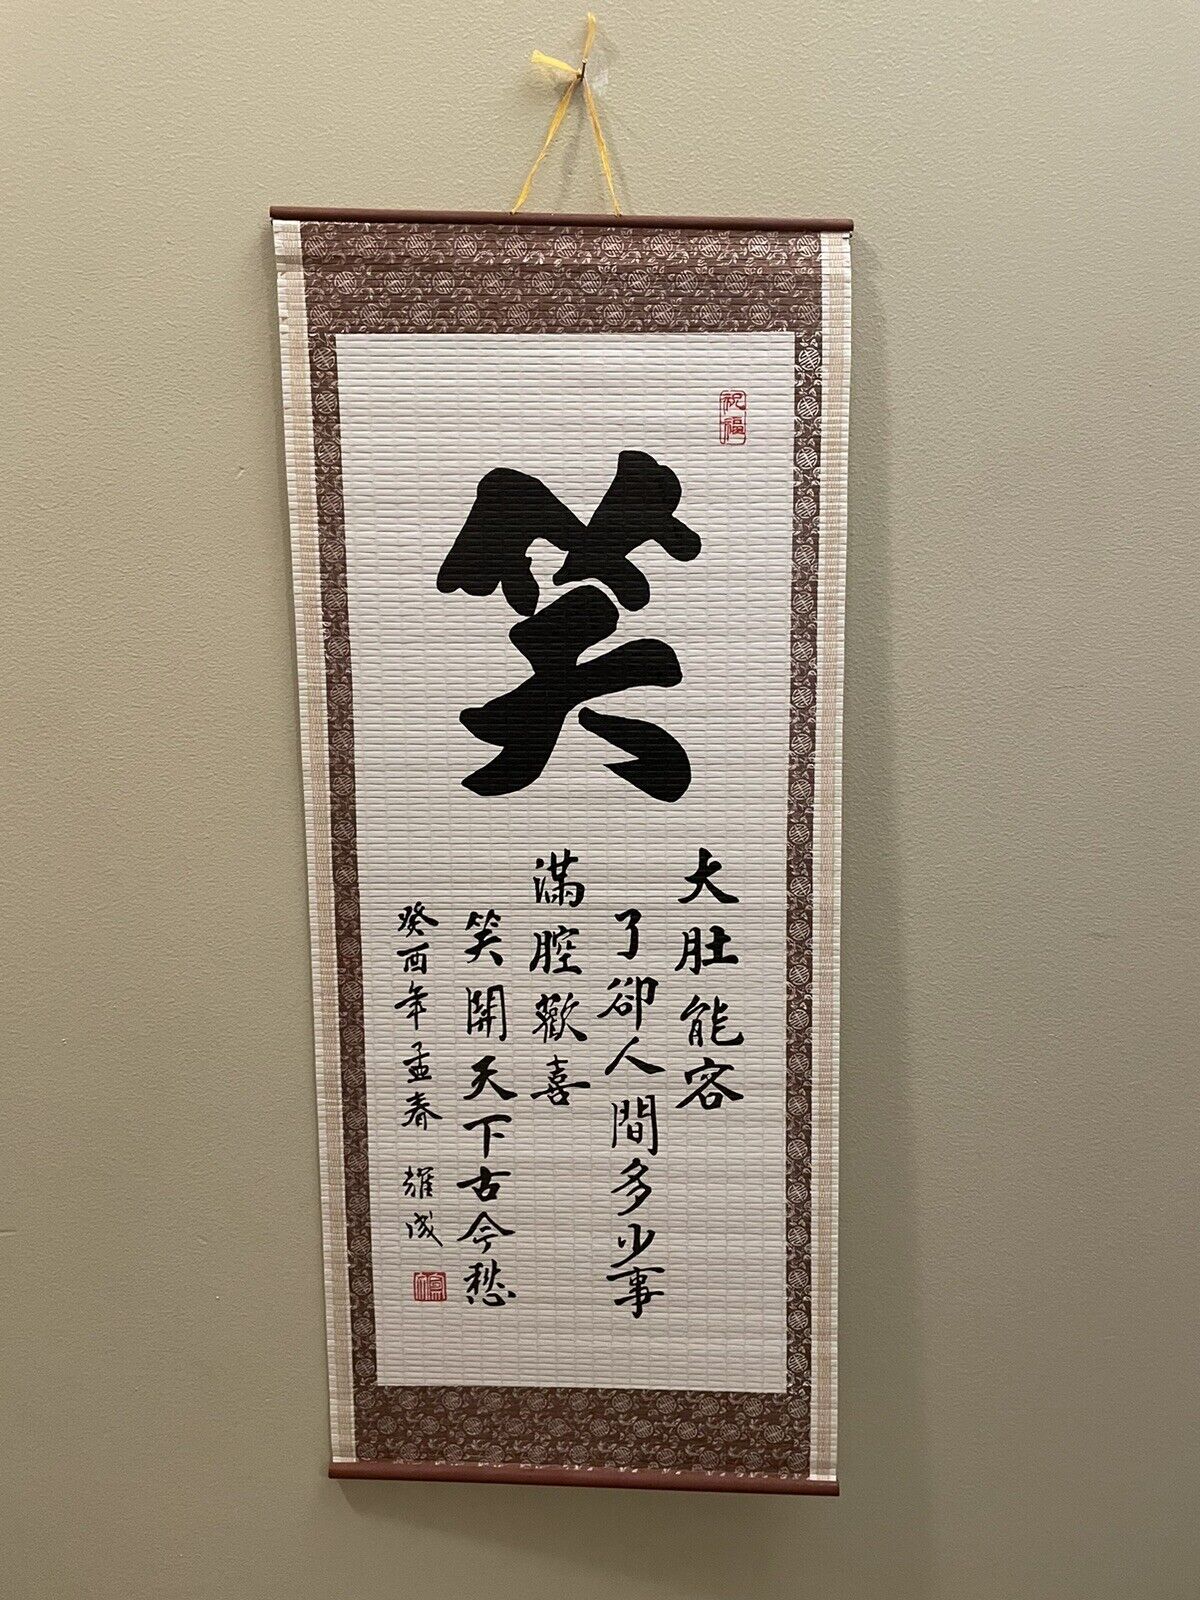 祝福
笑
大肚能容
了卻人間多少事
滿腔歡喜
笑開天下古今愁
癸酉年孟春 耀成